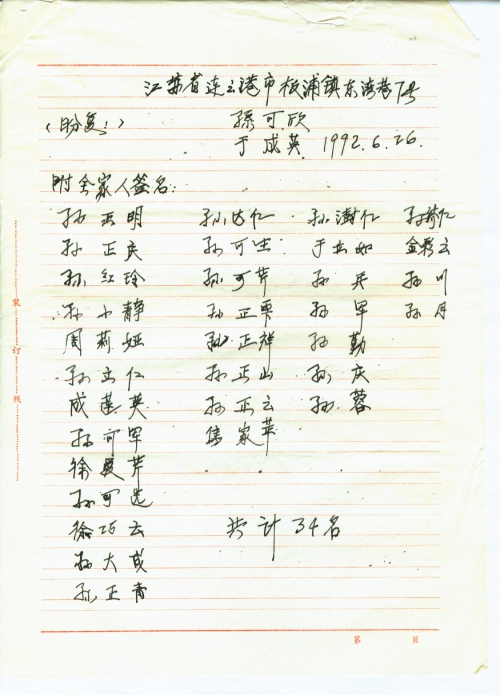 江苏省连云港市板浦镇东海巷7号
(盼复!) 孫可欣
于成英 1992.6.26.
附全家人签名:
孙正明 孙达仁 孙澍仁 孙倚仁
孙正庆 孙可生 于出如 金彩云
孙红玲 孙可芹 孙兵 孙川
孙小静 孙正军 孙军 孙月
周莉娅 孙正祥 孙勤
孙立仁 孙正山 孙庆
成莲英 孙正云 孙蓉
孙可军 侍家苹
徐爱芹
孙可选
徐巧云 共计34名
孙大成
孙正青
装订线
第 页